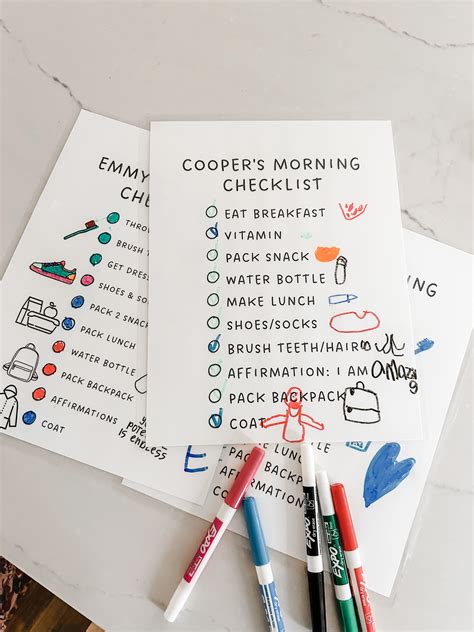 EMMY
CHE
THROW
BRUSH T
GET DRES
SHOES & SO
PACK 2 SNACK
PACK LUNCH
WATER BOTTLE
PACK BACKPACK
AFFIRMATIONS
COAT
POTE
IS ENDLESS
COOPER'S MORNING
CHECKLIST
EAT BREAKFAST
VITAMIN
PACK SNACK
WATER BOTTLE
MAKE LUNCH
SHOES/SOCKS
BRUSH TEETH/HAIR
AFFIRMATION: I AM amazing
PACK BACKPACK
COAT
NING
E
MAKE LUNCH
SHOES/SOCKS
BRUSH
AFFIRMATION
PACK
COAT
EXPO
EXPO
EXPO
EXPO